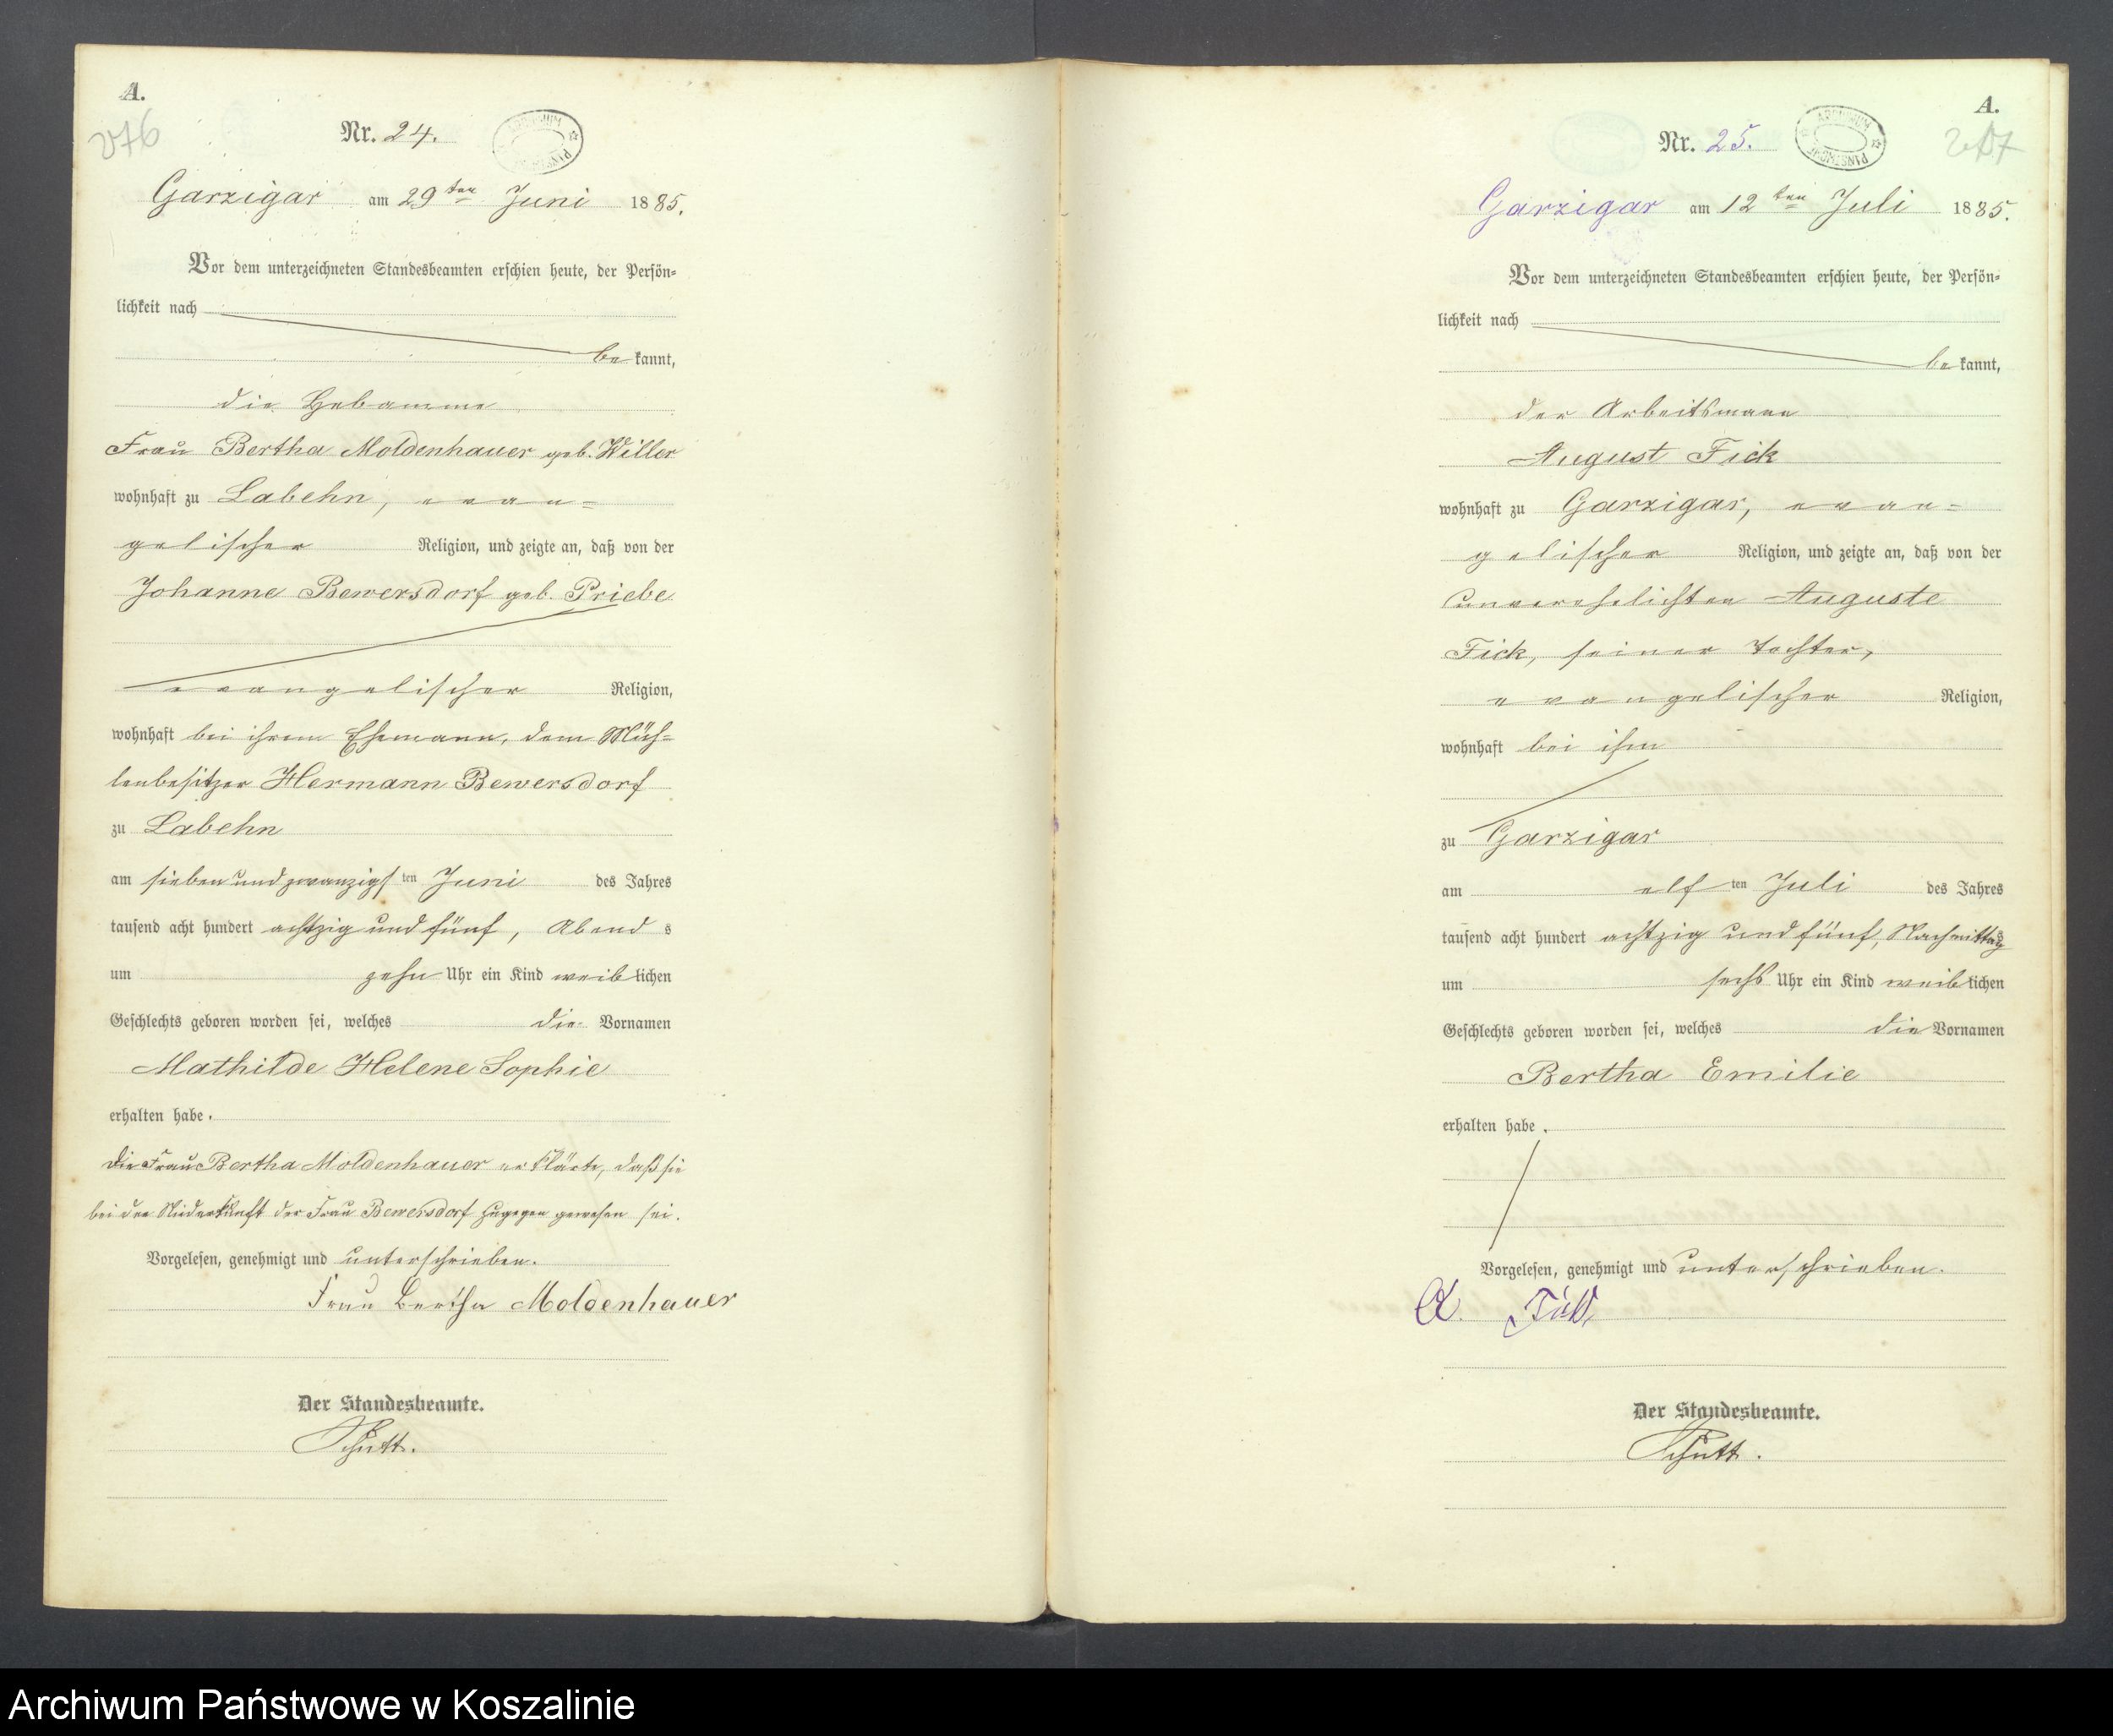 A.
276
Nr. 24.
ARCHIWUM PAŃSTWOWE
Garzigar am 29ten Juni 1885.
Vor dem unterzeichneten Standesbeamten erschien heute, der Persön=
lichkeit nach
bekannt,
die Hebamme
Frau Bertha Moldenhauer geb. Willer
wohnhaft zu Labehn, evan=
gelischer Religion, und zeigte an, daß von der
Johanne Bewersdorf geb. Priebe
evangelischer Religion,
wohnhaft bei ihrem Ehemann, dem Müh=
lenbesitzer Hermann Bewersdorf
zu Labehn
am sieben und zwanzigsten Juni des Jahres
tausend acht hundert achtzig und fünf, Abends
um zehn Uhr ein Kind weiblichen
Geschlechts geboren worden sei, welches die Vornamen
Mathilde Helene Sophie
erhalten habe.
Die Frau Bertha Moldenhauer erklärte, daß sie
bei der Niederkunft der Frau Bewersdorf zugegen gewesen sei.
Vorgelesen, genehmigt und unterschrieben.
Frau Bertha Moldenhauer
Der Standesbeamte.
Schütt.
A.
Nr. 25.
ARCHIWUM PAŃSTWOWE
Garzigar am 12ten Juli 1885.
Vor dem unterzeichneten Standesbeamten erschien heute, der Persön=
lichkeit nach
bekannt,
der Arbeitsmann
August Fick
wohnhaft zu Garzigar, evan=
gelischer Religion, und zeigte an, daß von der
unverehelichten Auguste
Fick, seiner Tochter,
evangelischer Religion,
wohnhaft bei ihm
zu Garzigar
am elften Juli des Jahres
tausend acht hundert achtzig und fünf, Nachmittags
um sechs Uhr ein Kind weiblichen
Geschlechts geboren worden sei, welches die Vornamen
Bertha Emilie
erhalten habe.
Vorgelesen, genehmigt und unterschrieben.
A. Fick
Der Standesbeamte.
Schütt.
Archiwum Państwowe w Koszalinie